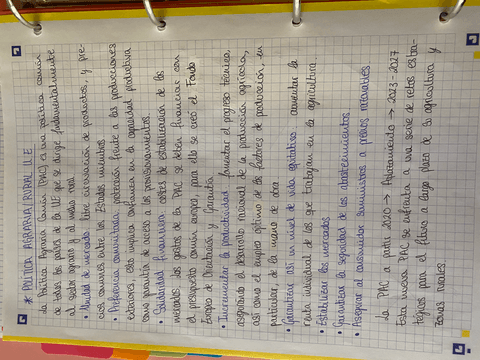 * POLÍTICA AGRARIA/RURAL U.E
La Política Agraria Común (PAC) es una política común
de todos los países de la UE que se dirige fundamentalmente
al sector agrario y al medio rural
• Unidad de mercado libre circulación de productos, y pre-
cios comunes entre los Estados miembros
• Preferencia comunitaria protección frente a las producciones
exteriores, esto implica confianza en la capacidad productiva
como garantía de acceso a los aprovisionamientos
• Solidaridad financiera costes de estabilización de los
mercados, los gastos de la PAC se deben financiar con
el presupuesto común europeo, para ello se creó el Fondo
Europeo de Orientación y Garantía
• Incrementar la productividad fomentar el progreso técnico,
asegurando el desarrollo racional de la producción agrícola,
así como el empleo óptimo de los factores de producción, en
particular, de la mano de obra
• Garantizar así un nivel de vida equitativo aumentar la
renta individual de los que trabajan en la agricultura
• Estabilizar los mercados
• Garantizar la seguridad de los abastecimientos
• Asegurar al consumidor suministros a precios razonables
La PAC a partir 2020 → Aplazamiento → 2023-2027
Esta nueva PAC se enfrenta a una serie de retos estra-
tégicos para el futuro a largo plazo de la agricultura y
zonas rurales